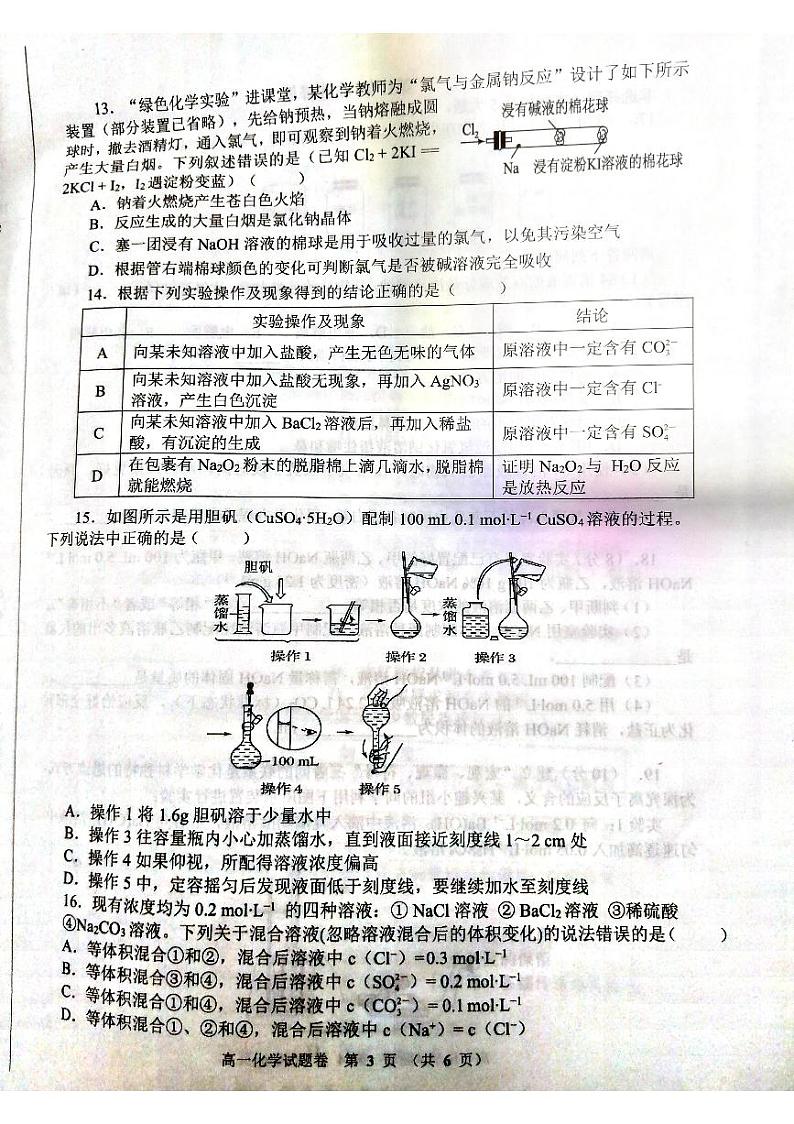 13．“绿色化学实验”进课堂，某化学教师为“氯气与金属钠反应”设计了如下所示
装置（部分装置已省略），先给钠预热，当钠熔融成圆
球时，撤去酒精灯，通入氯气，即可观察到钠着火燃烧，
产生大量白烟。下列叙述错误的是（已知 Cl₂ + 2KI ==
2KCl + I₂，I₂遇淀粉变蓝）（　　）
浸有碱液的棉花球
Cl₂
Na 浸有淀粉KI溶液的棉花球
A．钠着火燃烧产生苍白色火焰
B．反应生成的大量白烟是氯化钠晶体
C．塞一团浸有 NaOH 溶液的棉球是用于吸收过量的氯气，以免其污染空气
D．根据管右端棉球颜色的变化可判断氯气是否被碱溶液完全吸收
14．根据下列实验操作及现象得到的结论正确的是（　　）
实验操作及现象 结论
A 向某未知溶液中加入盐酸，产生无色无味的气体 原溶液中一定含有 CO₃²⁻
B 向某未知溶液中加入盐酸无现象，再加入 AgNO₃
溶液，产生白色沉淀 原溶液中一定含有 Cl⁻
C 向某未知溶液中加入 BaCl₂ 溶液后，再加入稀盐
酸，有沉淀的生成 原溶液中一定含有 SO₄²⁻
D 在包裹有 Na₂O₂ 粉末的脱脂棉上滴几滴水，脱脂棉
就能燃烧 证明 Na₂O₂ 与 H₂O 反应
是放热反应
15．如图所示是用胆矾（CuSO₄·5H₂O）配制 100 mL 0.1 mol·L⁻¹ CuSO₄ 溶液的过程。
下列说法中正确的是（　　）
胆矾
蒸馏水
蒸馏水
操作1 操作2 操作3
100 mL
操作4 操作5
A．操作 1 将 1.6g 胆矾溶于少量水中
B．操作 3 往容量瓶内小心加蒸馏水，直到液面接近刻度线 1～2 cm 处
C．操作 4 如果仰视，所配得溶液浓度偏高
D．操作 5 中，定容摇匀后发现液面低于刻度线，要继续加水至刻度线
16．现有浓度均为 0.2 mol·L⁻¹ 的四种溶液：① NaCl 溶液 ② BaCl₂ 溶液 ③稀硫酸
④Na₂CO₃ 溶液。下列关于混合溶液(忽略溶液混合后的体积变化)的说法错误的是（　　）
A．等体积混合①和②，混合后溶液中 c（Cl⁻）=0.3 mol·L⁻¹
B．等体积混合③和④，混合后溶液中 c（SO₄²⁻）= 0.2 mol·L⁻¹
C．等体积混合①和④，混合后溶液中 c（CO₃²⁻）= 0.1 mol·L⁻¹
D．等体积混合①、②和④，混合后溶液中 c（Na⁺）= c（Cl⁻）
高一化学试题卷 第 3 页 （共 6 页）